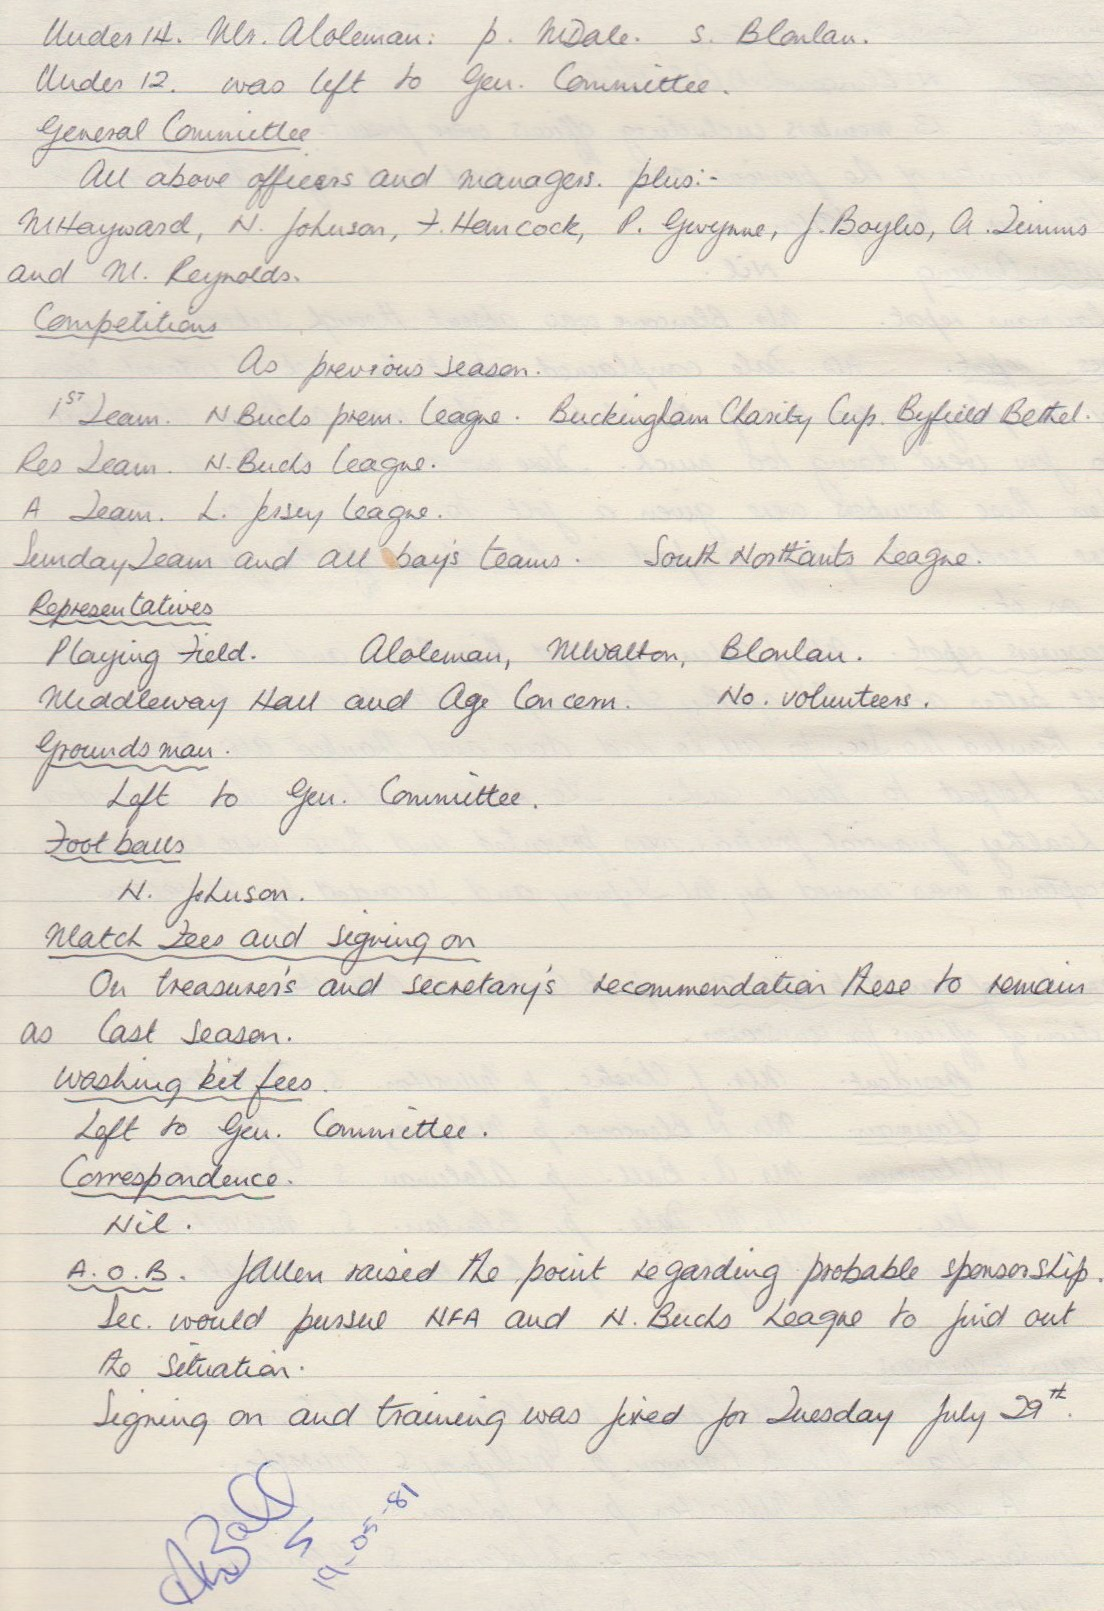 Under 14. Mr. A Coleman: p. M Dale. s. B Conlan.
Under 12. was left to Gen. Committee.
General Committee
All above officers and managers. plus:-
M Hayward, N. Johnson, F. Hancock, P. Gwynne, J. Bayles, A. Timms
and M. Reynolds.
Competitions
As previous season.
1ST Team. N Bucks prem. League. Buckingham Charity Cup. Byfield Bethel.
Res Team. N. Bucks League.
A Team. L. Jersey League.
Sunday Team and all boy's teams. South Northants League.
Representatives
Playing Field. A Coleman, M Walton, B Conlan.
Middleway Hall and Age Concern. No. volunteers.
Groundsman.
Left to Gen. Committee.
Footballs
N. Johnson.
Match Fees and signing on
On treasurer's and secretary's recommendation these to remain
as last season.
Washing kit fees.
Left to Gen. Committee.
Correspondence.
Nil.
A.O.B. J Allen raised the point regarding probable sponsorship.
Sec. would pursue NFA and N. Bucks League to find out
the situation.
Signing on and training was fixed for Tuesday July 29th.
19-05-81